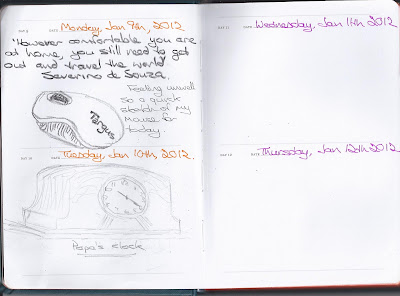 DAY 9 DATE Monday, Jan 9th, 2012
"However comfortable you are
at home, you still need to get
out and travel the world"
Severino de Souza.
Feeling unwell
so a quick
sketch of my
mouse for
today.
Targus
DAY 10 DATE Tuesday, Jan 10th, 2012.
Papa's clock
DAY 11 DATE Wednesday, Jan 11th, 2012
DATE Thursday, Jan 12th, 2012